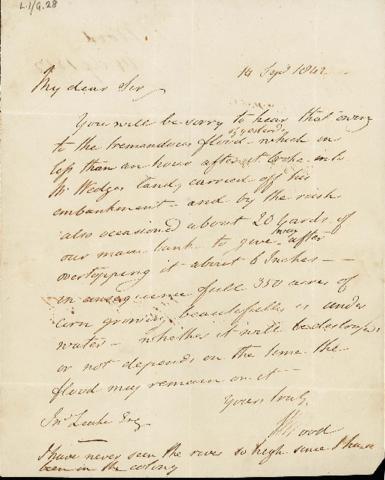 L.1/G.28
14 Sept 1842
My dear Sir
You will be sorry to hear that owing
to the tremendous flood yesterday which in
less than an hour after it broke into
Mr Wedges land, carried off his
embankment - and by the rush
also occasioned about 20 yards of
our main bank to give away after
overtopping it about 6 Inches -
in consequence full 350 acres of
corn growing beautifully is under
water - whether it will be destroyed
or not depends on the time the
flood may remain on it -
Yours truly
Wood
Jno Leake Esq
I have never seen the river so high since I have
been in the colony